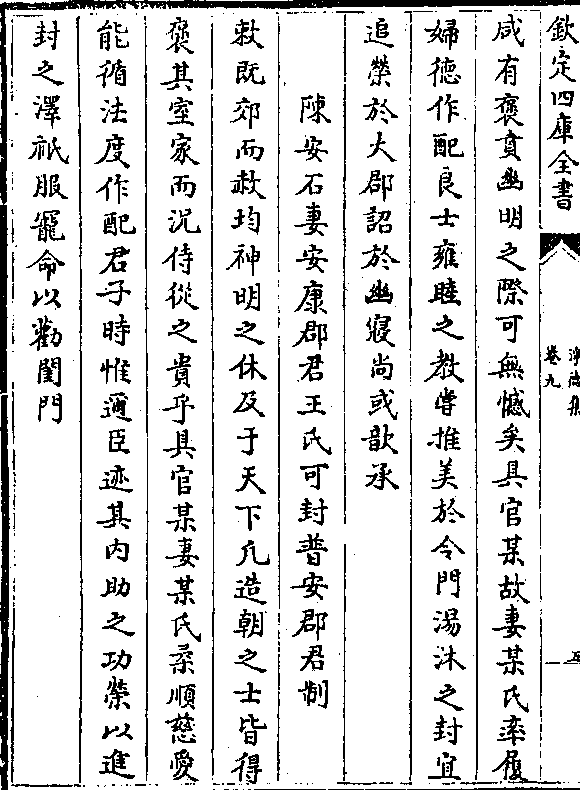 欽定四庫全書
卷九
咸有褒賁幽明之際可無憾矣具官某故妻某氏率履
婦德作配良士雍睦之教嘗推美於令門湯沐之封宜
追榮於大郡詔於幽窹尚或歆承
陳安石妻安康郡君王氏可封普安郡君制
敕既郊而赦均神明之休及于天下凡造朝之士皆得
褒其室家而況侍從之貴乎具官某妻某氏柔順慈愛
能循法度作配君子時惟邇臣迹其内助之功榮以進
封之澤祇服寵命以勸閨門